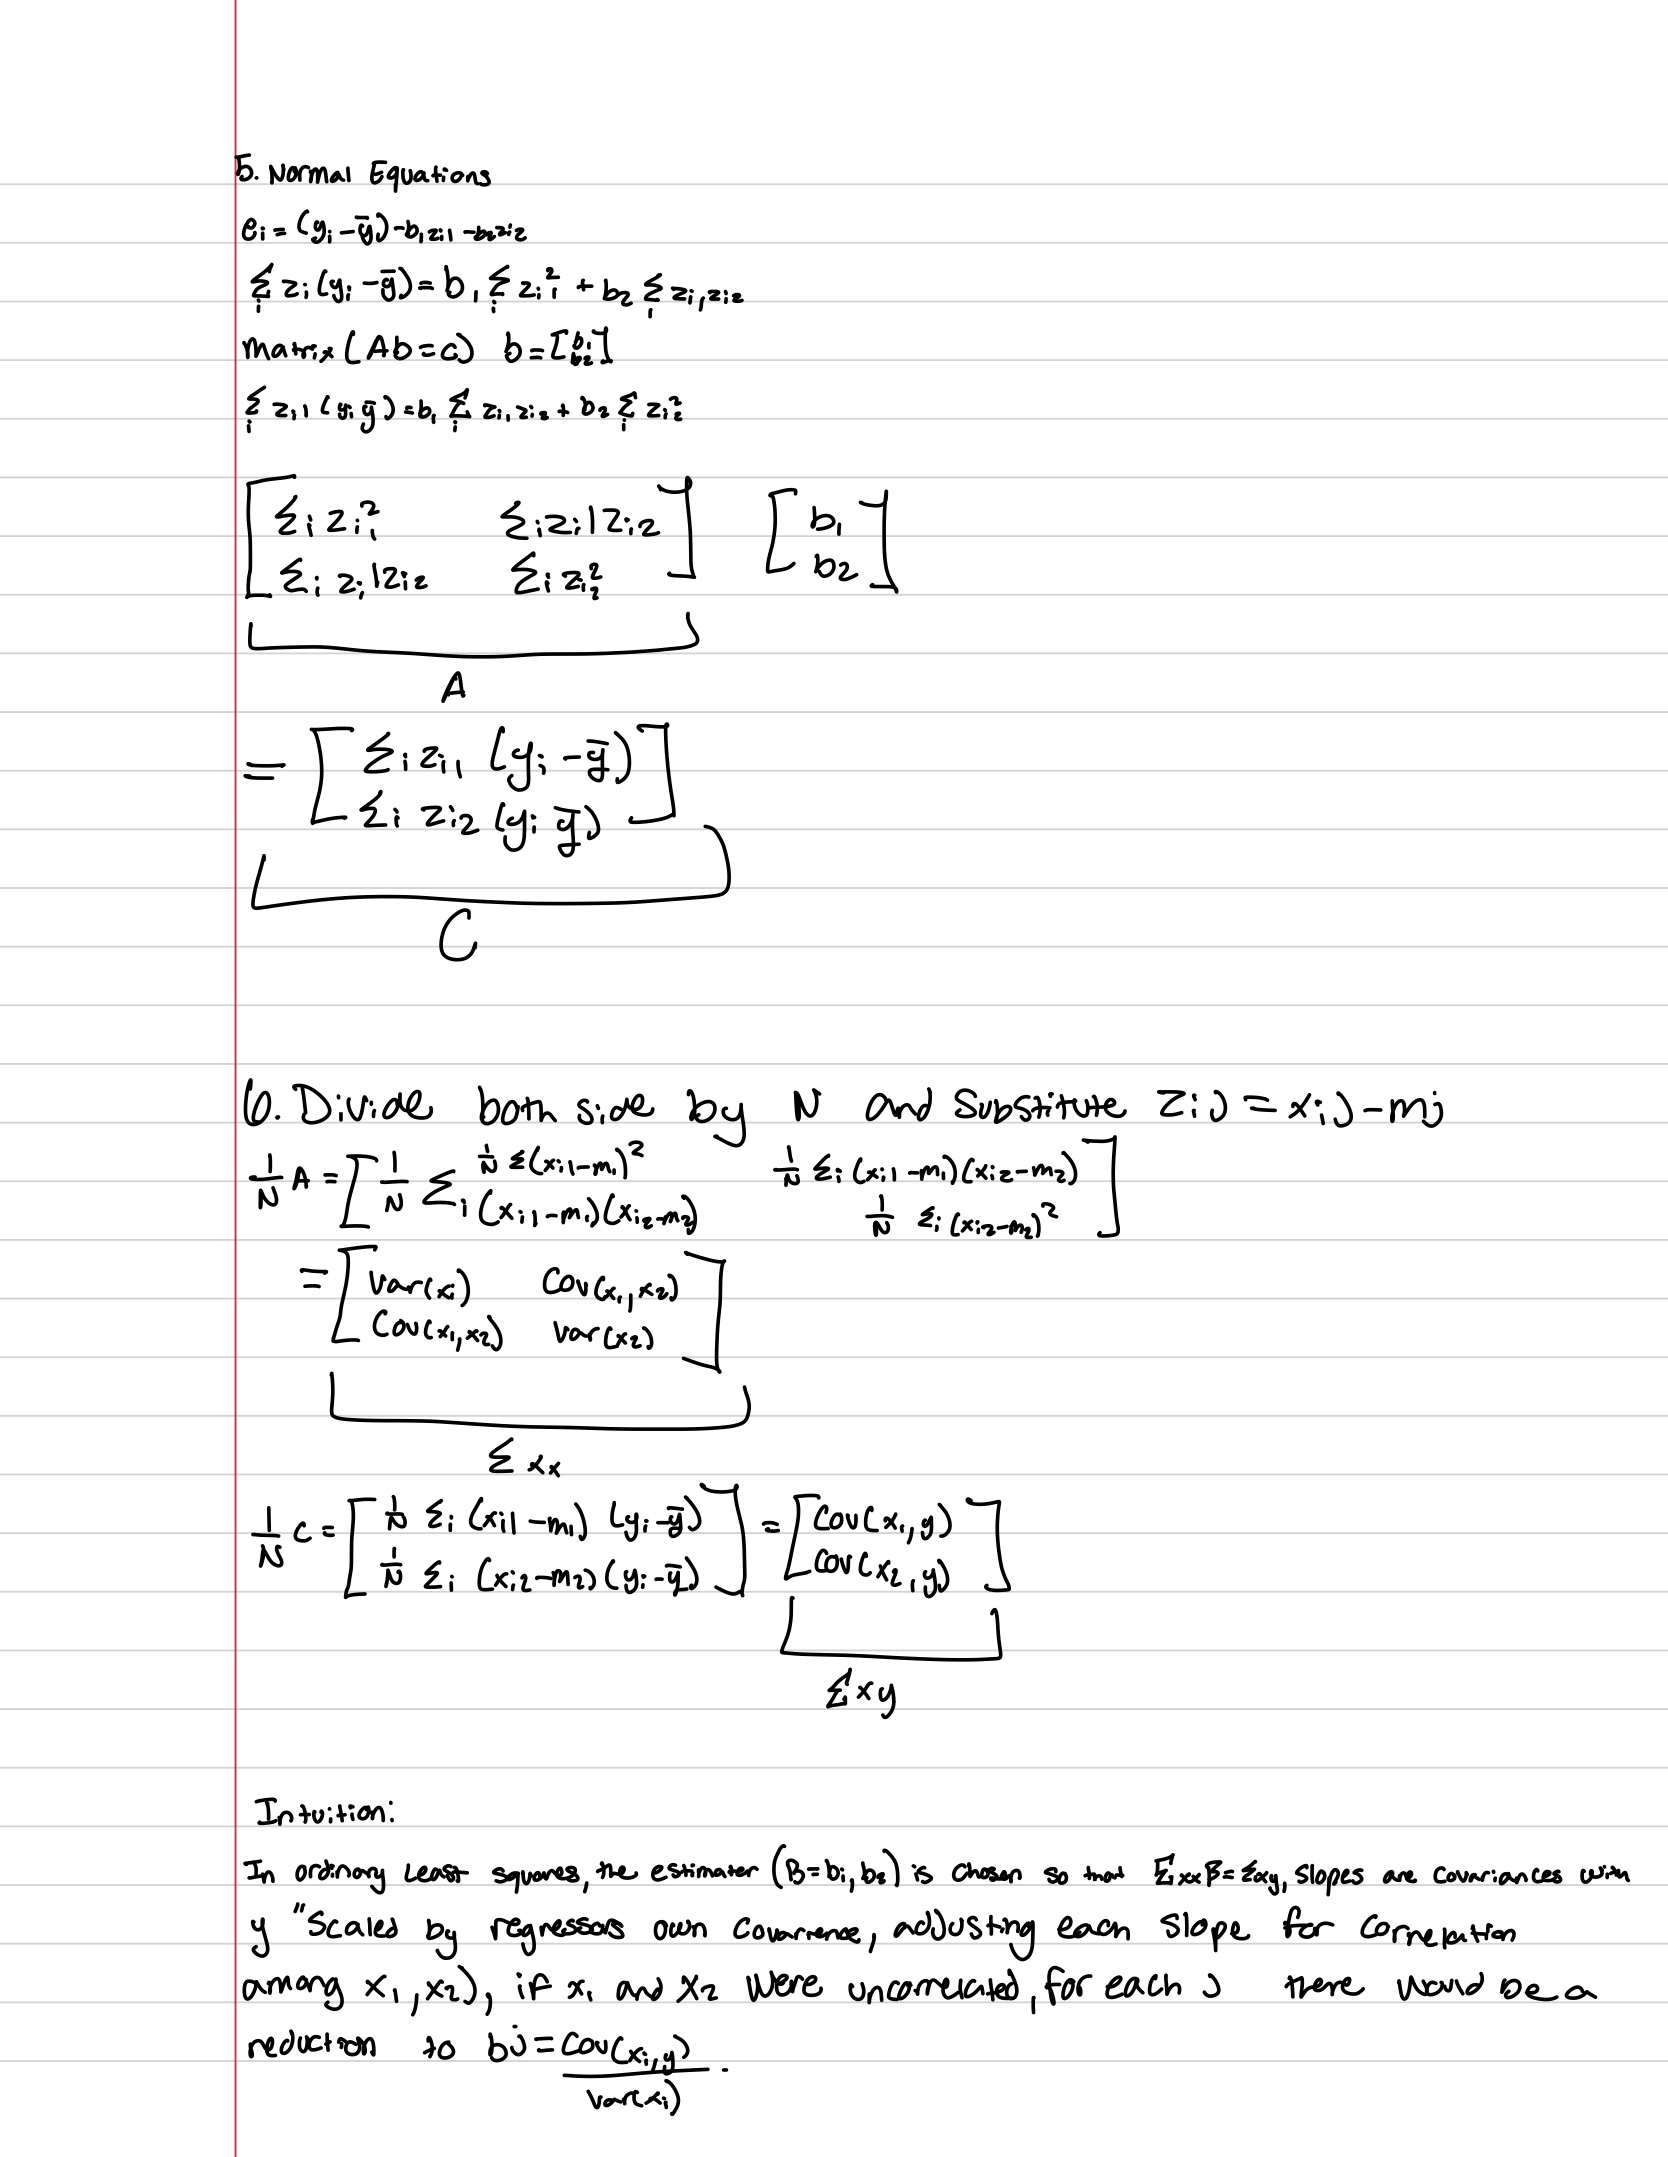 5. Normal Equations
eᵢ = (yᵢ - ȳ) - b₁zᵢ₁ - b₂zᵢ₂
Σᵢ zᵢ (yᵢ - ȳ) = b₁ Σᵢ zᵢ₁² + b₂ Σᵢ zᵢ₁zᵢ₂
matrix (Ab = c) b = [b₁ b₂]
Σᵢ zᵢ₁ (yᵢ ȳ) = b₁ Σᵢ zᵢ₁zᵢ₂ + b₂ Σᵢ zᵢ₂²
[ Σᵢ zᵢ₁² Σᵢ zᵢ1zᵢ₂ ] [ b₁ ]
[ Σᵢ zᵢ1zᵢ₂ Σᵢ zᵢ₂² ] [ b₂ ]
A
= [ Σᵢ zᵢ₁ (yᵢ - ȳ) ]
[ Σᵢ zᵢ₂ (yᵢ ȳ) ]
C
6. Divide both side by N and Substitute zᵢj = xᵢj - mj
1/N A = [ 1/N Σ(xᵢ₁ - m₁)² 1/N Σᵢ (xᵢ₁ - m₁)(xᵢ₂ - m₂) ]
[ 1/N Σᵢ (xᵢ₁ - m₁)(xᵢ₂ - m₂) 1/N Σᵢ (xᵢ₂ - m₂)² ]
= [ Var(x₁) Cov(x₁, x₂) ]
[ Cov(x₁, x₂) Var(x₂) ]
Σ xx
1/N C = [ 1/N Σᵢ (xᵢ1 - m₁) (yᵢ - ȳ) ] = [ Cov(x₁, y) ]
[ 1/N Σᵢ (xᵢ₂ - m₂)(yᵢ - ȳ) ] [ Cov(x₂, y) ]
Σ xy
Intuition:
In ordinary Least squares, the estimater (B = bᵢ, b₂) is chosen so that Σxx β = Σxy, Slopes are Covariances with
y "Scaled by regressors own Covarrence, adjusting each Slope for Cornelation
among x₁, x₂), if x₁ and x₂ were uncorrelated, for each j there would be a
reduction to bj = Cov(xᵢ, y) / Var(xᵢ) .